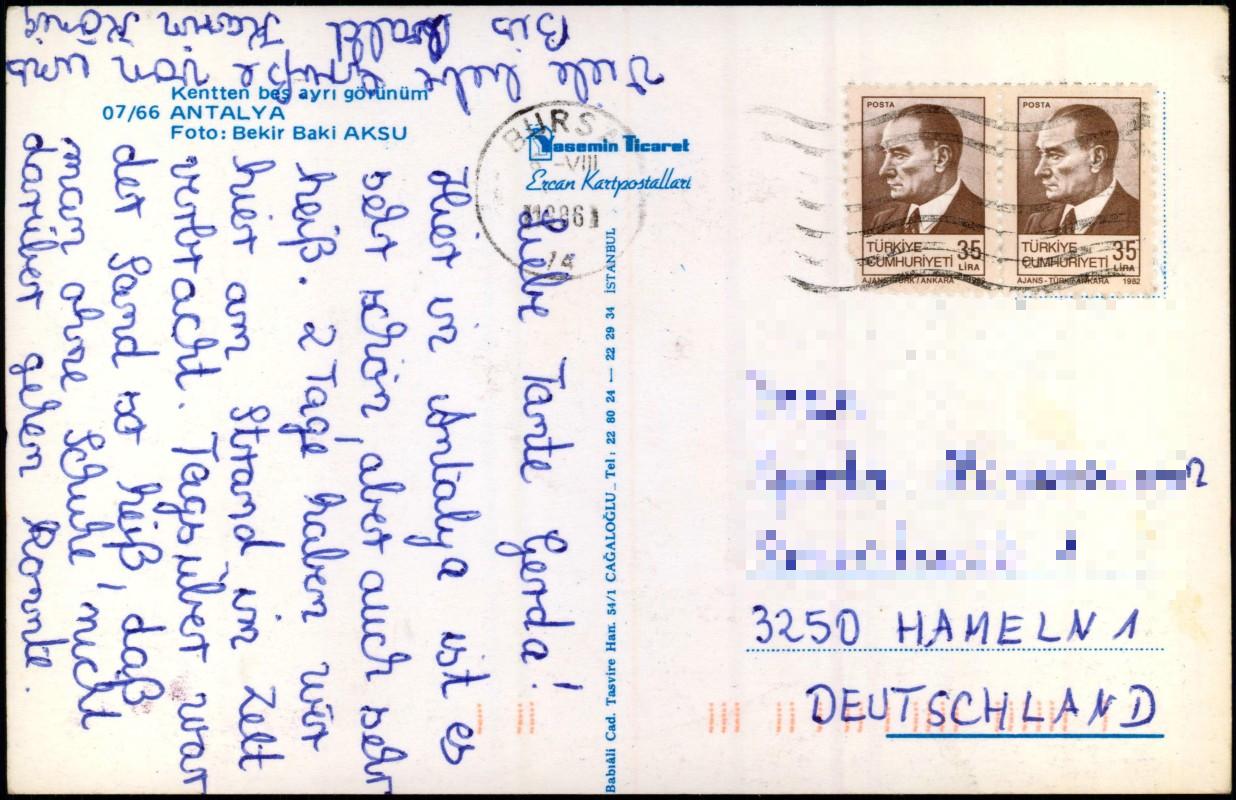 Kentten beş ayrı görünüm
07/66 ANTALYA
Foto: Bekir Baki AKSU
Yasemin Ticaret
Ercan Kartpostalları
BURSA
-VIII
14
Babıâli Cad. Tasvire Han. 54/1 CAĞALOĞLU_ Tel: 22 80 24 — 22 29 34 İSTANBUL
Liebe Tante Gerda!
Hier in Antalya ist es
sehr schön, aber auch sehr
heiß. 2 Tage haben wir
hier am Strand im Zelt
verbracht. Tagsüber war
der Sand so heiß, daß
man ohne Schuhe nicht
darüber gehen konnte.
Viele liebe Grüße von uns
Bis bald Karin König
POSTA
TÜRKİYE
CUMHURİYETİ 35
LİRA
AJANS-TÜRK/ANKARA 1982
POSTA
TÜRKİYE
CUMHURİYETİ 35
LİRA
AJANS-TÜRK/ANKARA 1982
3250 HAMELN 1
DEUTSCHLAND